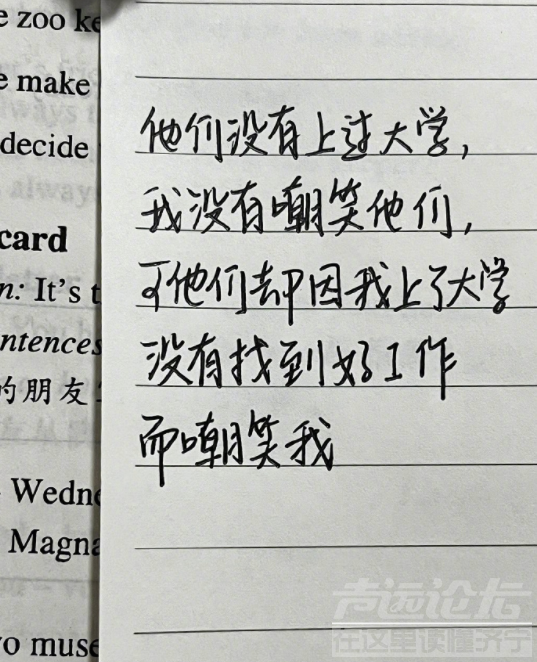 e zoo ke
e make
decide
card
n: It's t
ntences
的朋友
Wedne
Magna
o muse
他们没有上过大学,
我没有嘲笑他们,
可他们却因我上了大学
没有找到好工作
而嘲笑我
声远论坛
在这里读懂济宁